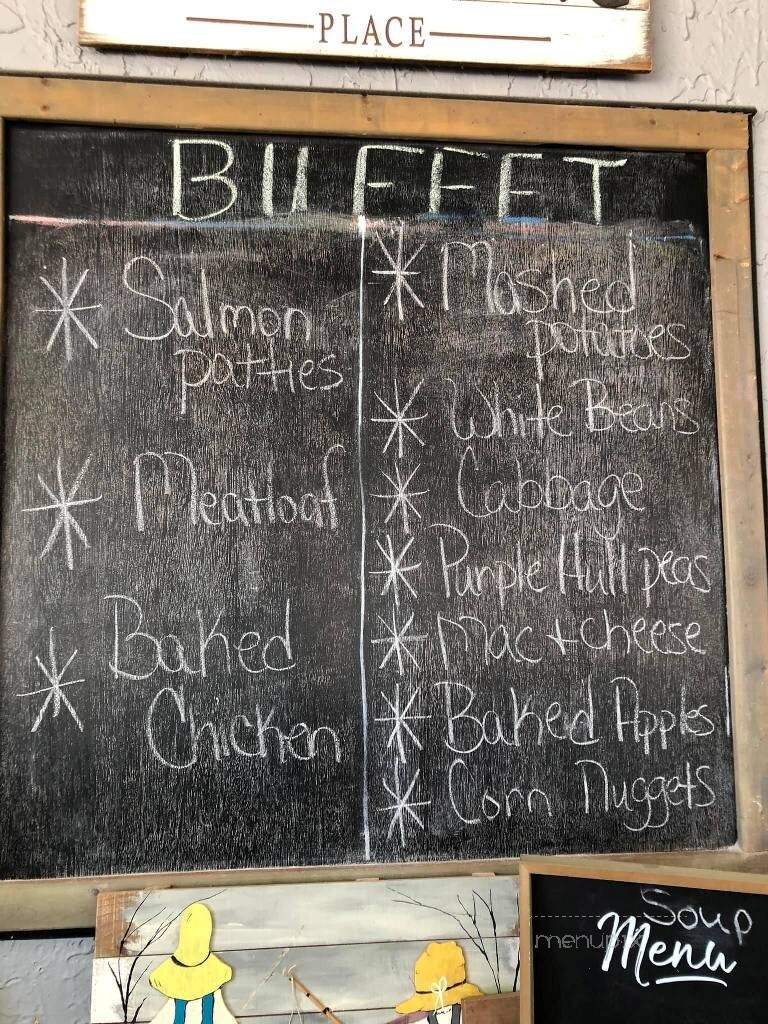 PLACE
BUFFET
* Salmon
patties
* Meatloaf
* Baked
Chicken
* Mashed
potatoes
* White Beans
* Cabbage
* Purple Hull peas
* Mac + cheese
* Baked Apples
* Corn Nuggets
Soup
Menu